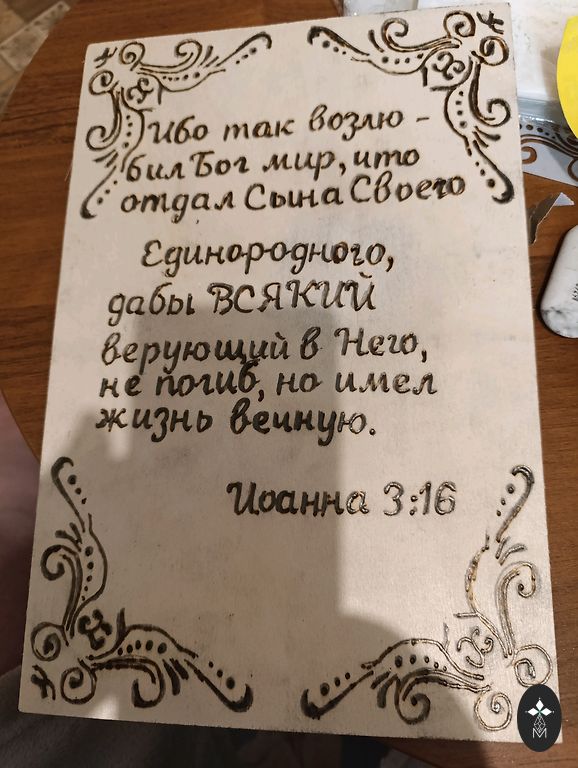 Ибо так возлю-
бил Бог мир, что
отдал Сына Своего
Единородного,
дабы ВСЯКИЙ
верующий в Него,
не погиб, но имел
жизнь вечную.
Иоанна 3:16
M